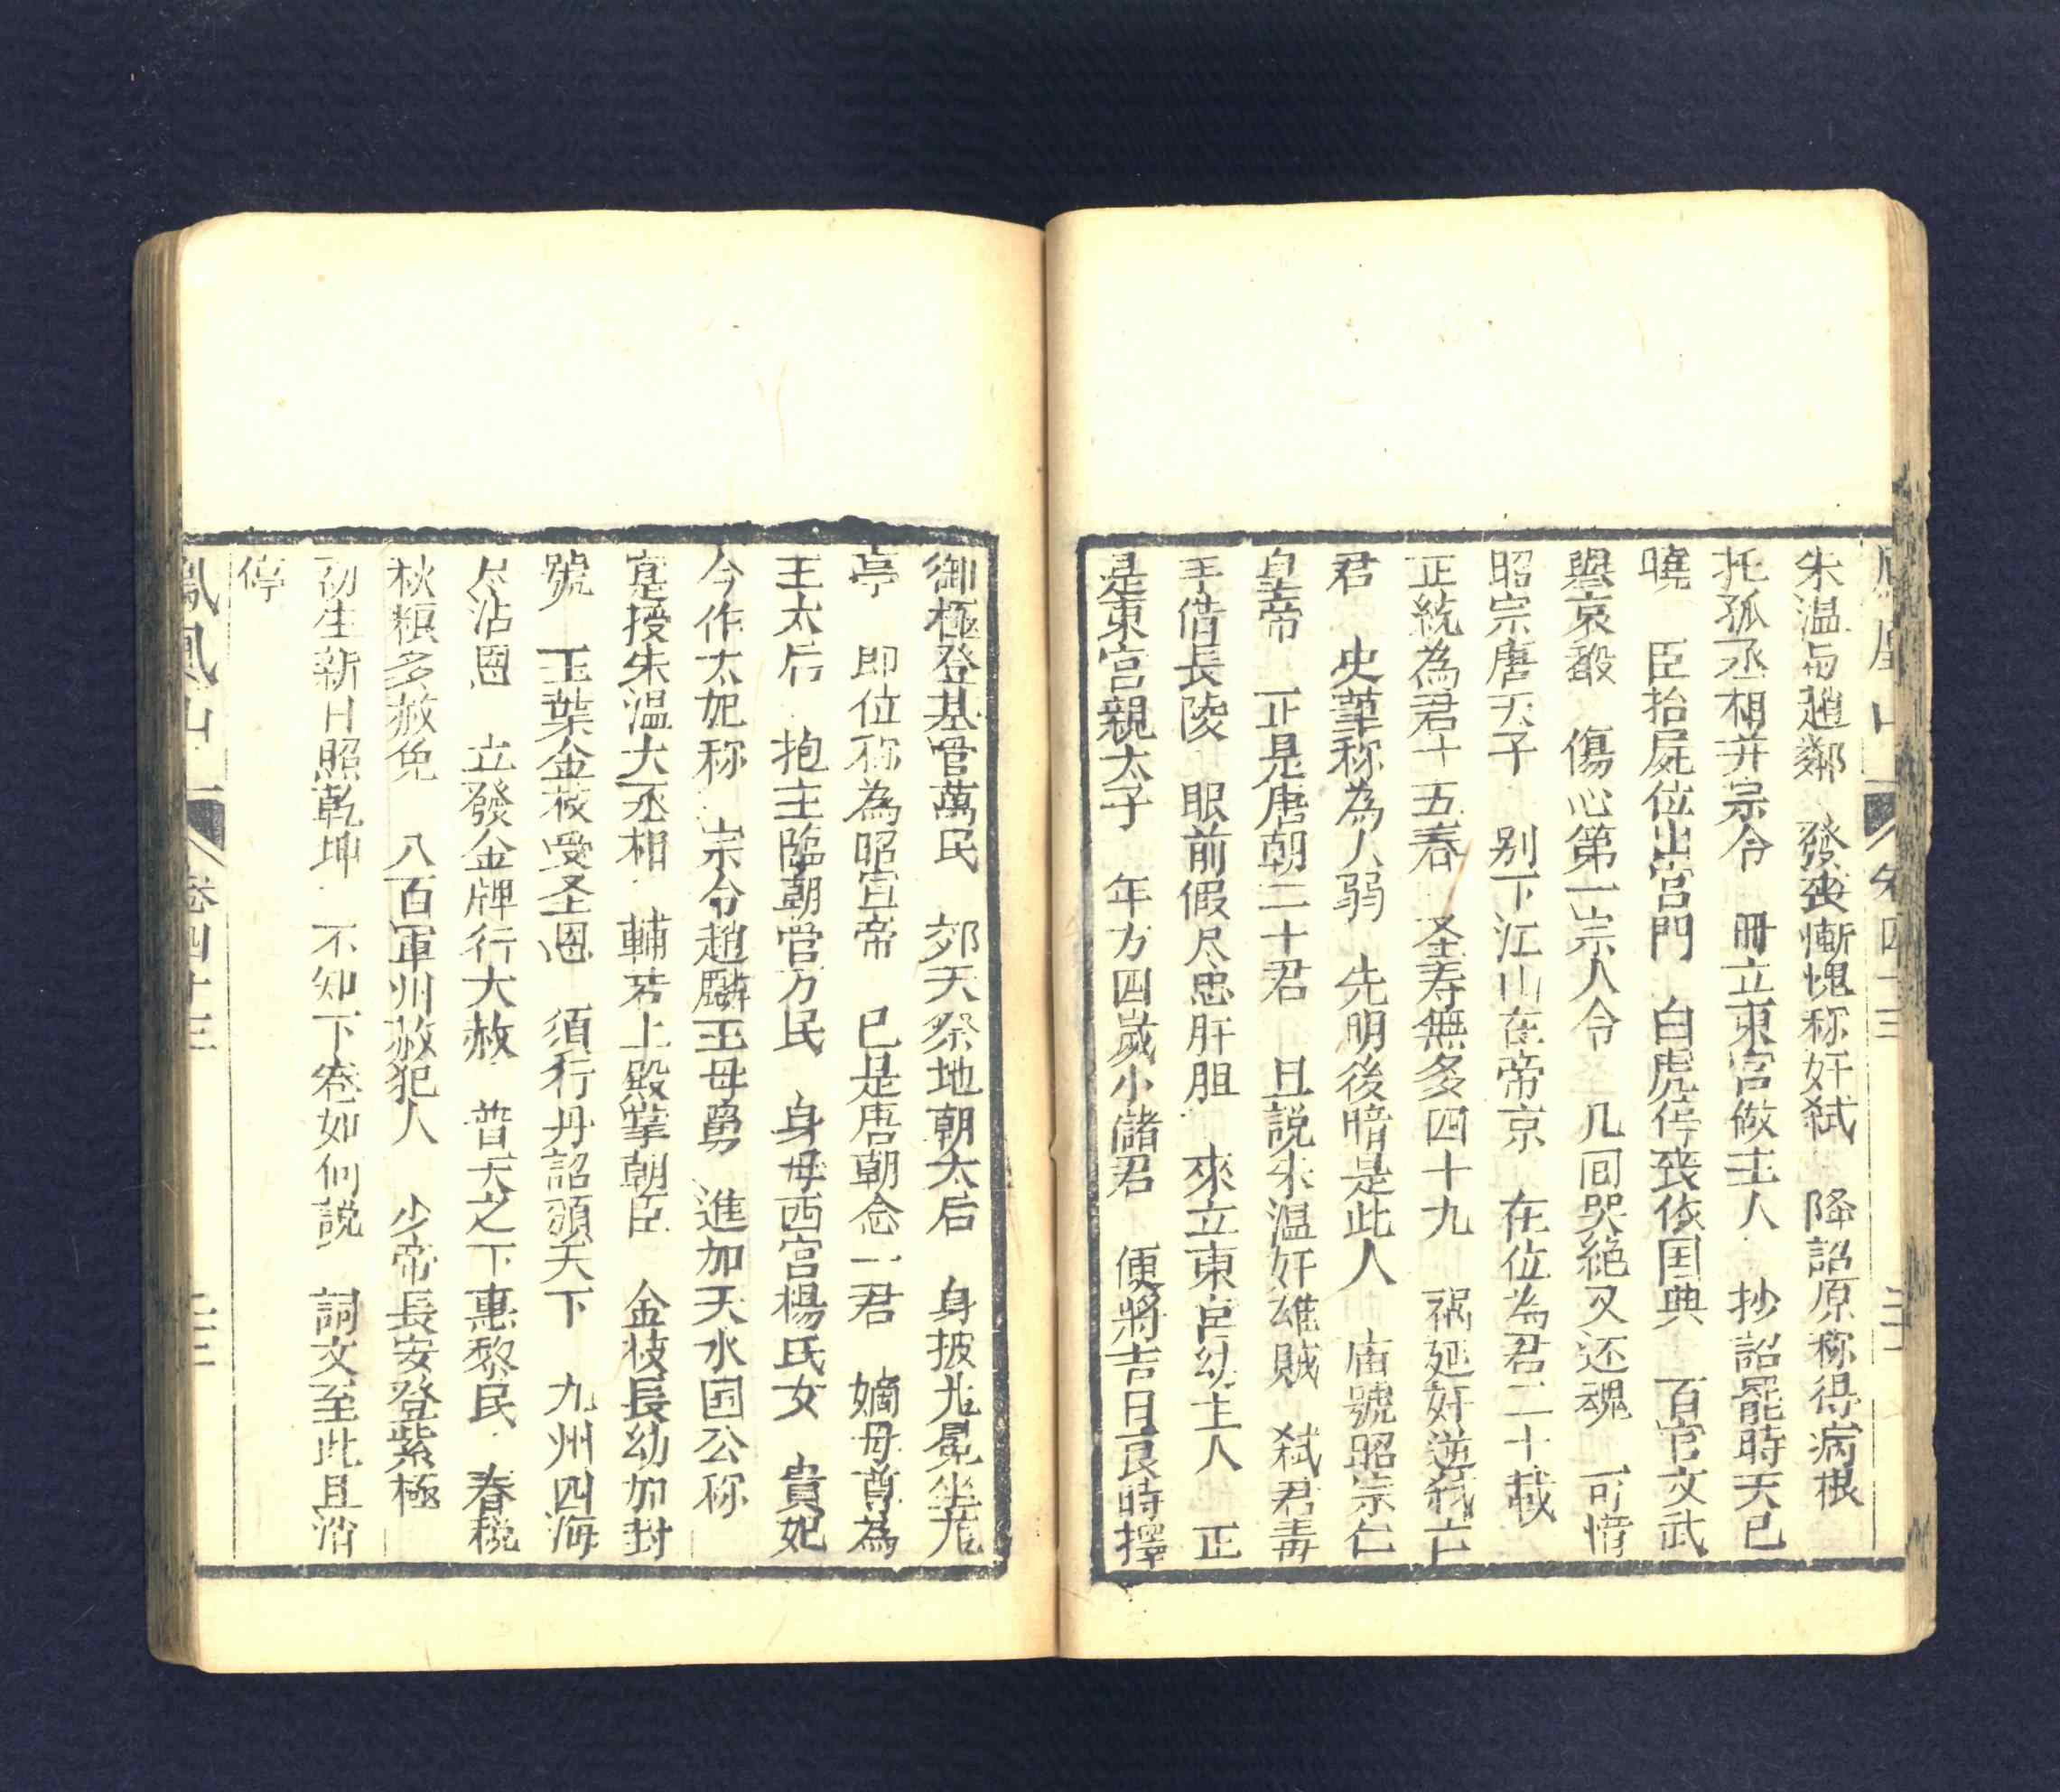 朱温与趙鄰　發喪慚愧称奸弒　降詔原称得病根
托孤丞相并宗令　冊立東宮做主人　抄詔罷時天已
曉　臣抬屍位出宮門　白虎停喪依国典　百官文武
舉哀　傷心第一宗人令　几囘哭絶又还魂　可惜
昭宗唐天子　别下江山在帝京　在位為君二十載
正統為君十五春　圣寿無多四十九　禍延奸逆弒亡
君　史筆称為人弱　先明後暗是此人　庙號昭宗仁
皇帝　正是唐朝二十君　且説朱温奸雄賊　弒君毒
手借長陵　眼前假尽忠肝胆　來立東宮幼主人　正
是東宮親太子　年方四歲小儲君　便將吉日良時擇
卷四十三
御極登基管萬民　郊天祭地朝太后　身披九冕坐龙
亭　即位称為昭宣帝　已是唐朝念一君　嫡母尊為
王太后　抱主臨朝管万民　身母西宮楊氏女　貴妃
今作太妃称　宗令趙麟王母舅　進加天水国公称
寔授朱温大丞相　輔君上殿掌朝臣　金枝長幼加封
號　玉葉金枝受圣恩　須行丹詔頒天下　九州四海
尽沾恩　立發金牌行大赦　普天之下惠黎民　春稅
秋糧多赦免　八百軍州赦犯人　少帝長安登紫極
初生新日照乾坤　不知下卷如何説　詞文至此且消
停
鳳凰山　卷四十三